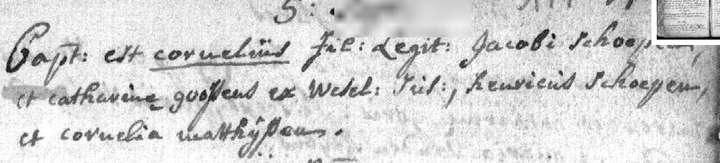 5:
Bapt: est cornelius fil: Legit: Jacobi Schoepen,
et catharine goossens ex Wesel: Sus:, henricus Schoepen,
et cornelia matthÿssen.